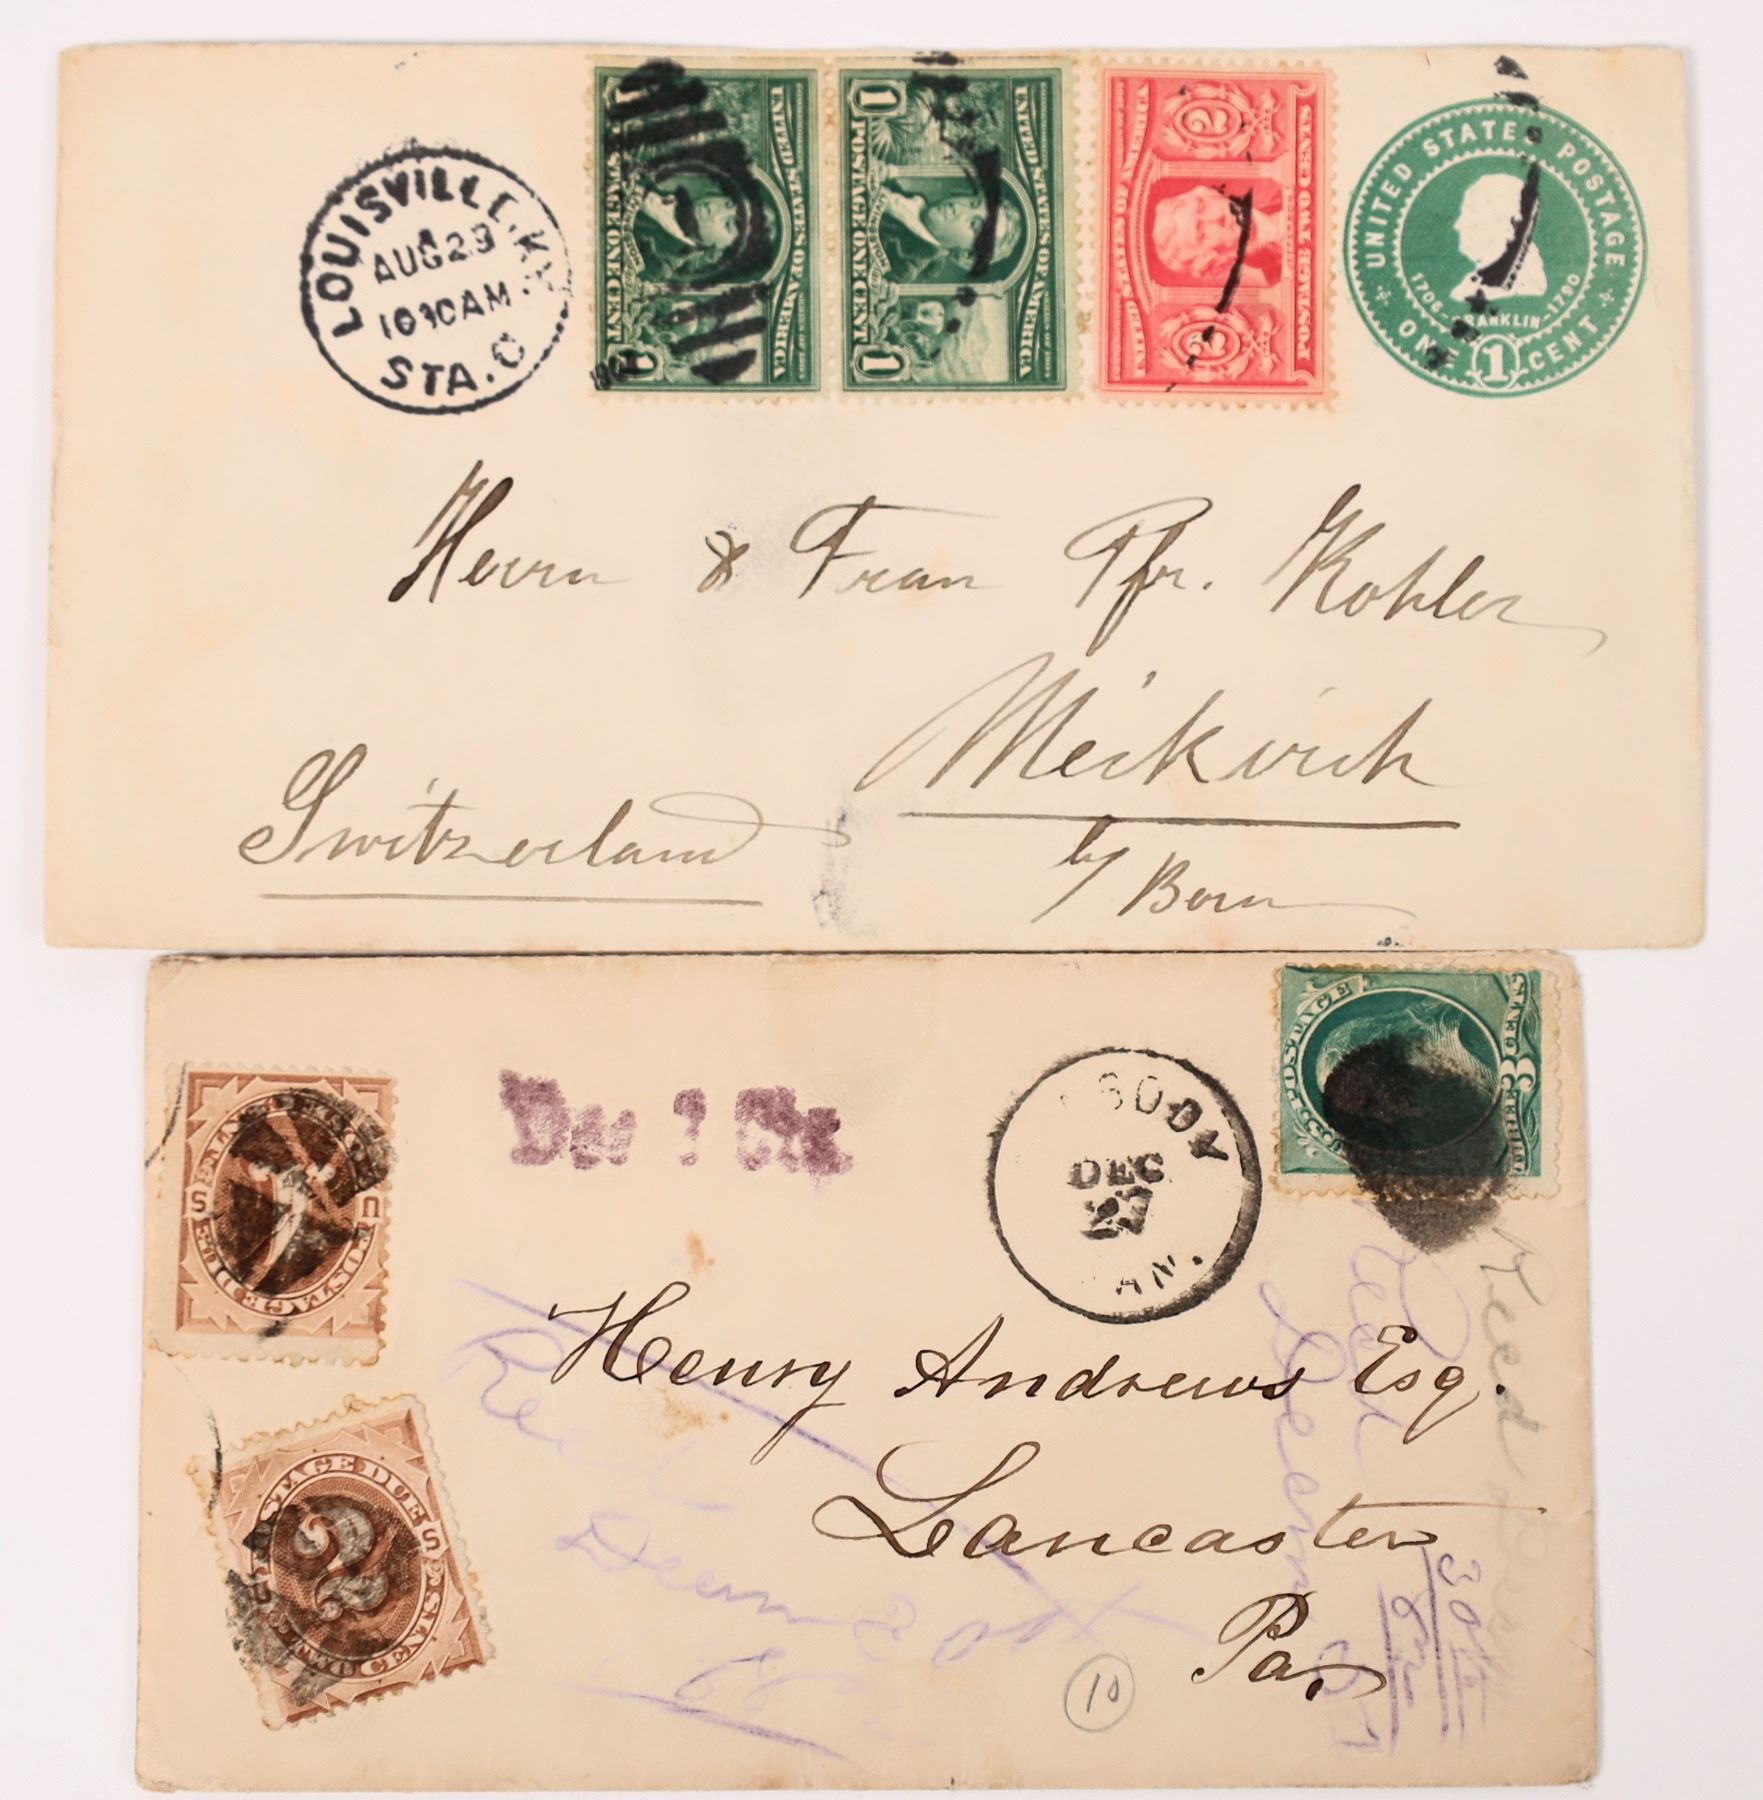 LOUISVILLE, KY.
AUG 29
1030AM
STA. C
1 UNITED STATES OF AMERICA 1
POSTAGE ONE CENT
1 UNITED STATES OF AMERICA 1
POSTAGE ONE CENT
UNITED STATES OF AMERICA
2 2
POSTAGE TWO CENTS
UNITED STATES POSTAGE
1706-FRANKLIN-1790
ONE 1 CENT
Herrn & Frau Pfr. Kohler
Meikirch
Switzerland
b/ Bern
U S
POSTAGE DUE
Due Cts
DEC
27
AN.
U.S. POSTAGE
3
Henry Andrews Esq.
Lancaster
Pa.
POSTAGE DUE
U S
2
TWO CENTS
10